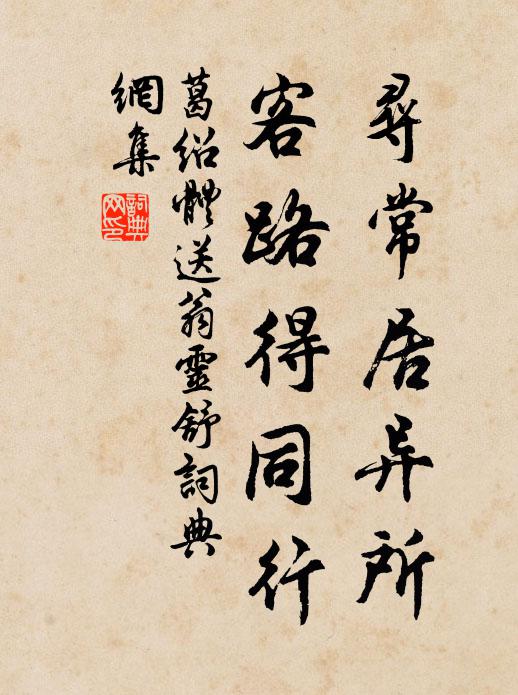 尋常居异所
客路得同行
葛紹體送翁靈舒詞典
網集
詞典
网印